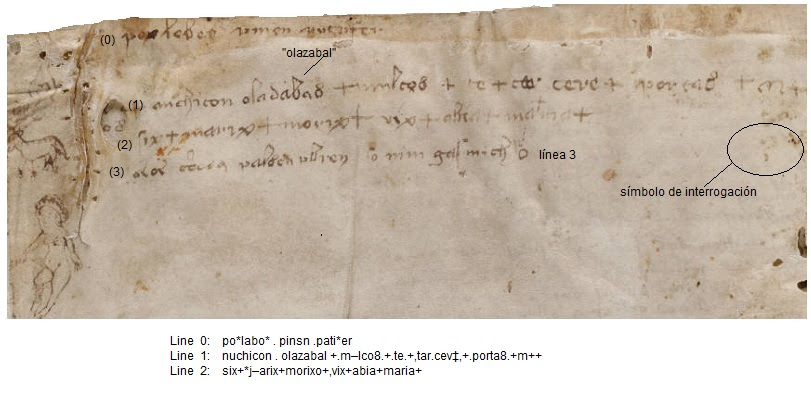 (0) pox leber umen putrifer
"olazabal"
(1) anchiton oladabas + multos + te + tar cere + portas + m +
(2) six + marix + morix + vix + abia + maria +
(3) ubren so nim gas mich o línea 3
símbolo de interrogación
Line 0: po*labo* . pinsn .pati*er
Line 1: nuchicon . olazabal +.m–lco8.+.te.+,tar.cev‡,+.porta8.+m++
Line 2: six+*j–arix+morixo+,vix+abia+maria+